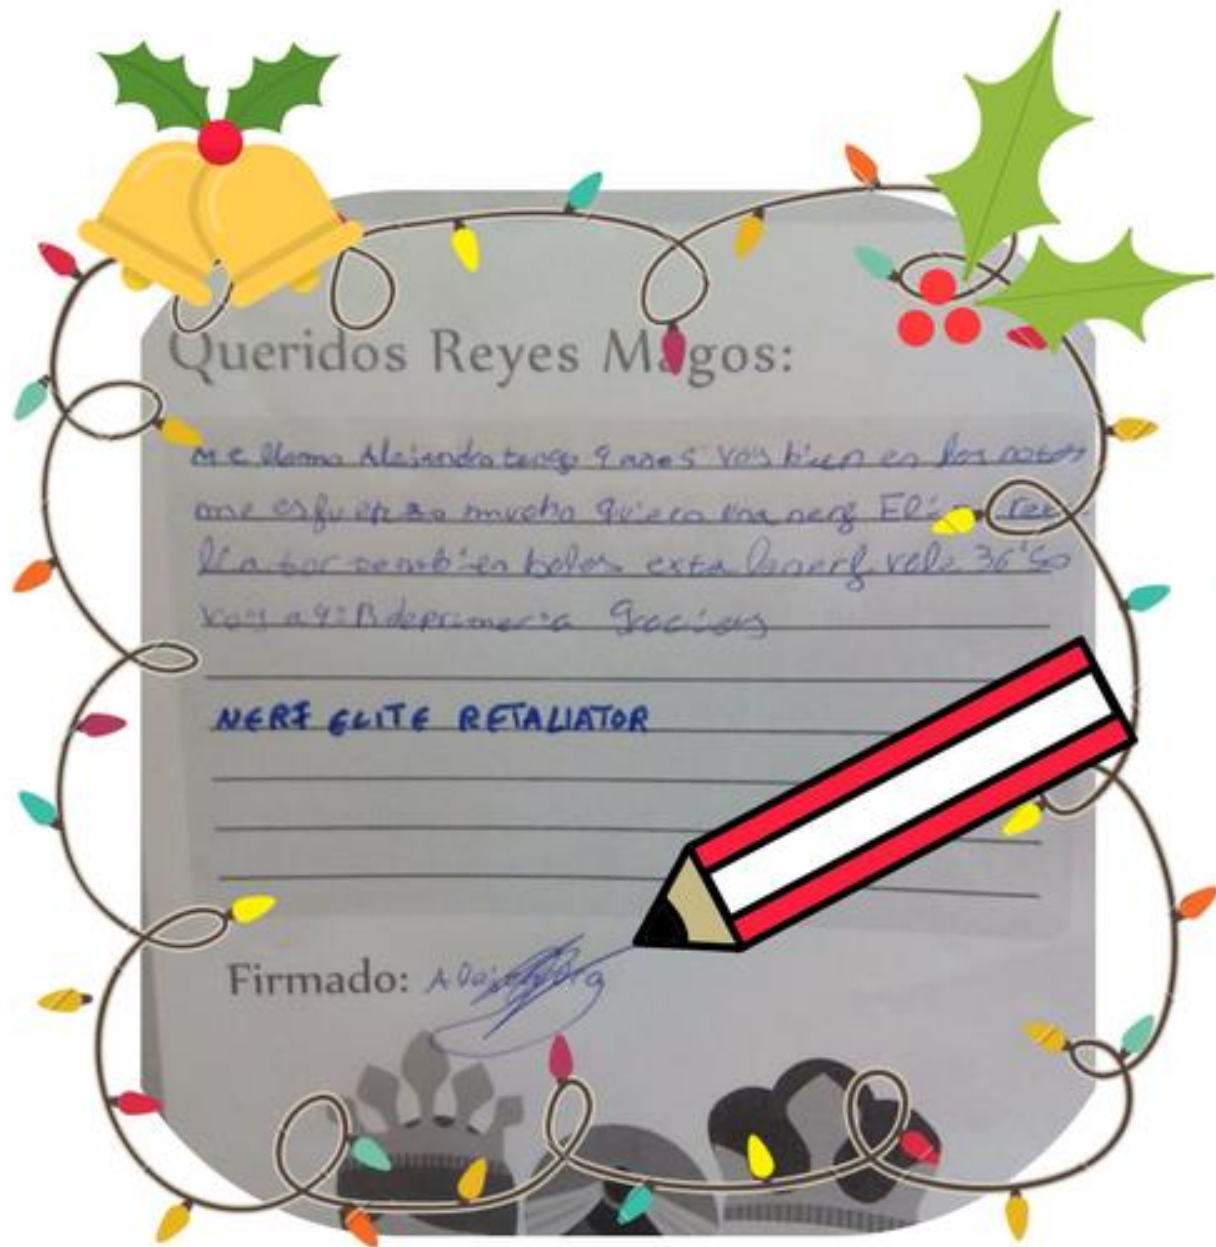 Queridos Reyes Magos:
me llamo Alejandro tengo 9 años voy bien en las notas
me esfuerzo mucho quiero una nerf Eli
liator tambien balas exta la nerf vale 36'50
voy a 4º B de primaria Gracias
NERF ELITE RETALIATOR
Firmado: Alejandro